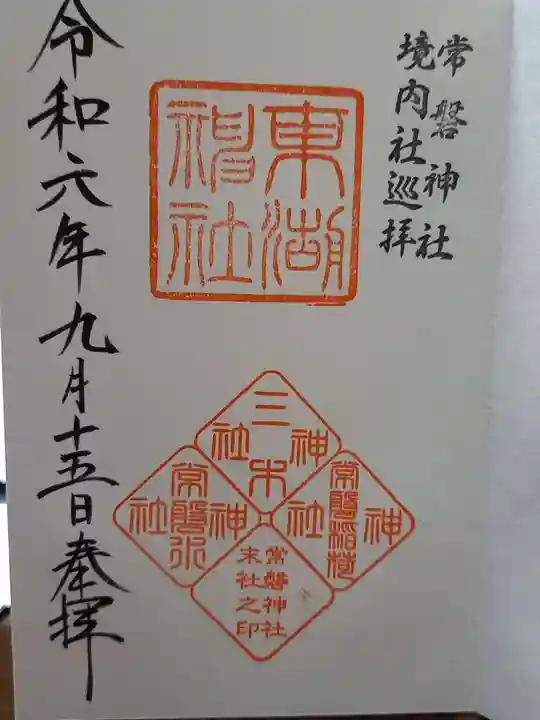 常磐神社
境内社巡拝
東湖
神社
三木
神社
常磐稲荷
神社
常磐水
神社
常磐神社
末社之印
令和六年九月十五日奉拝